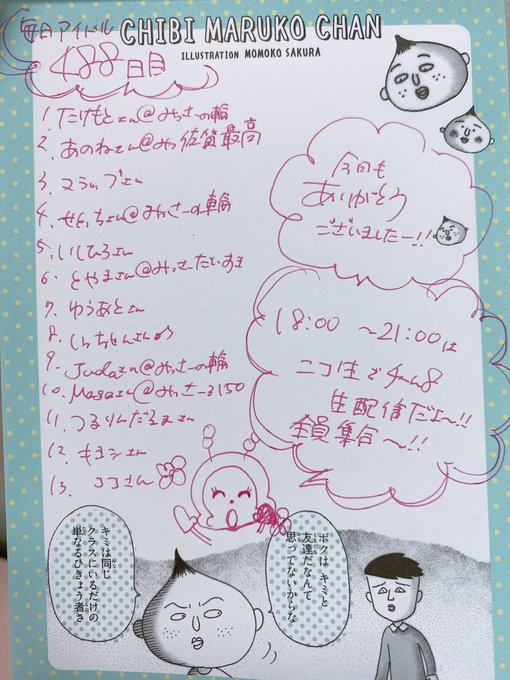 毎日アイドル
CHIBI MARUKO CHAN
ILLUSTRATION MOMOKO SAKURA
488日目
1. たけもとさん@みっさーの輪
2. あのねさん@みっ佐賀最高
3. マラップさん
4. せとっちさん@みっさーの輪
5. いしひろさん
6. とやまさん@みっさーだいすき
7. ゆうあとさん
8. しっちゃんさん
9. Judaさん@みっさーの輪
10. Masaさん@みっさー3150
11. つるりんだるまさん
12. キヨシさん
13. ココさん
今回も
ありがとう
ございましたー!!
18:00 〜21:00は
ニコ生でチーム8
生配信だよー!!
全員集合〜!!
ボクはキミと
友達だなんて
思ってないからな
キミは同じ
クラスにいるだけの
単なるひきょう者さ